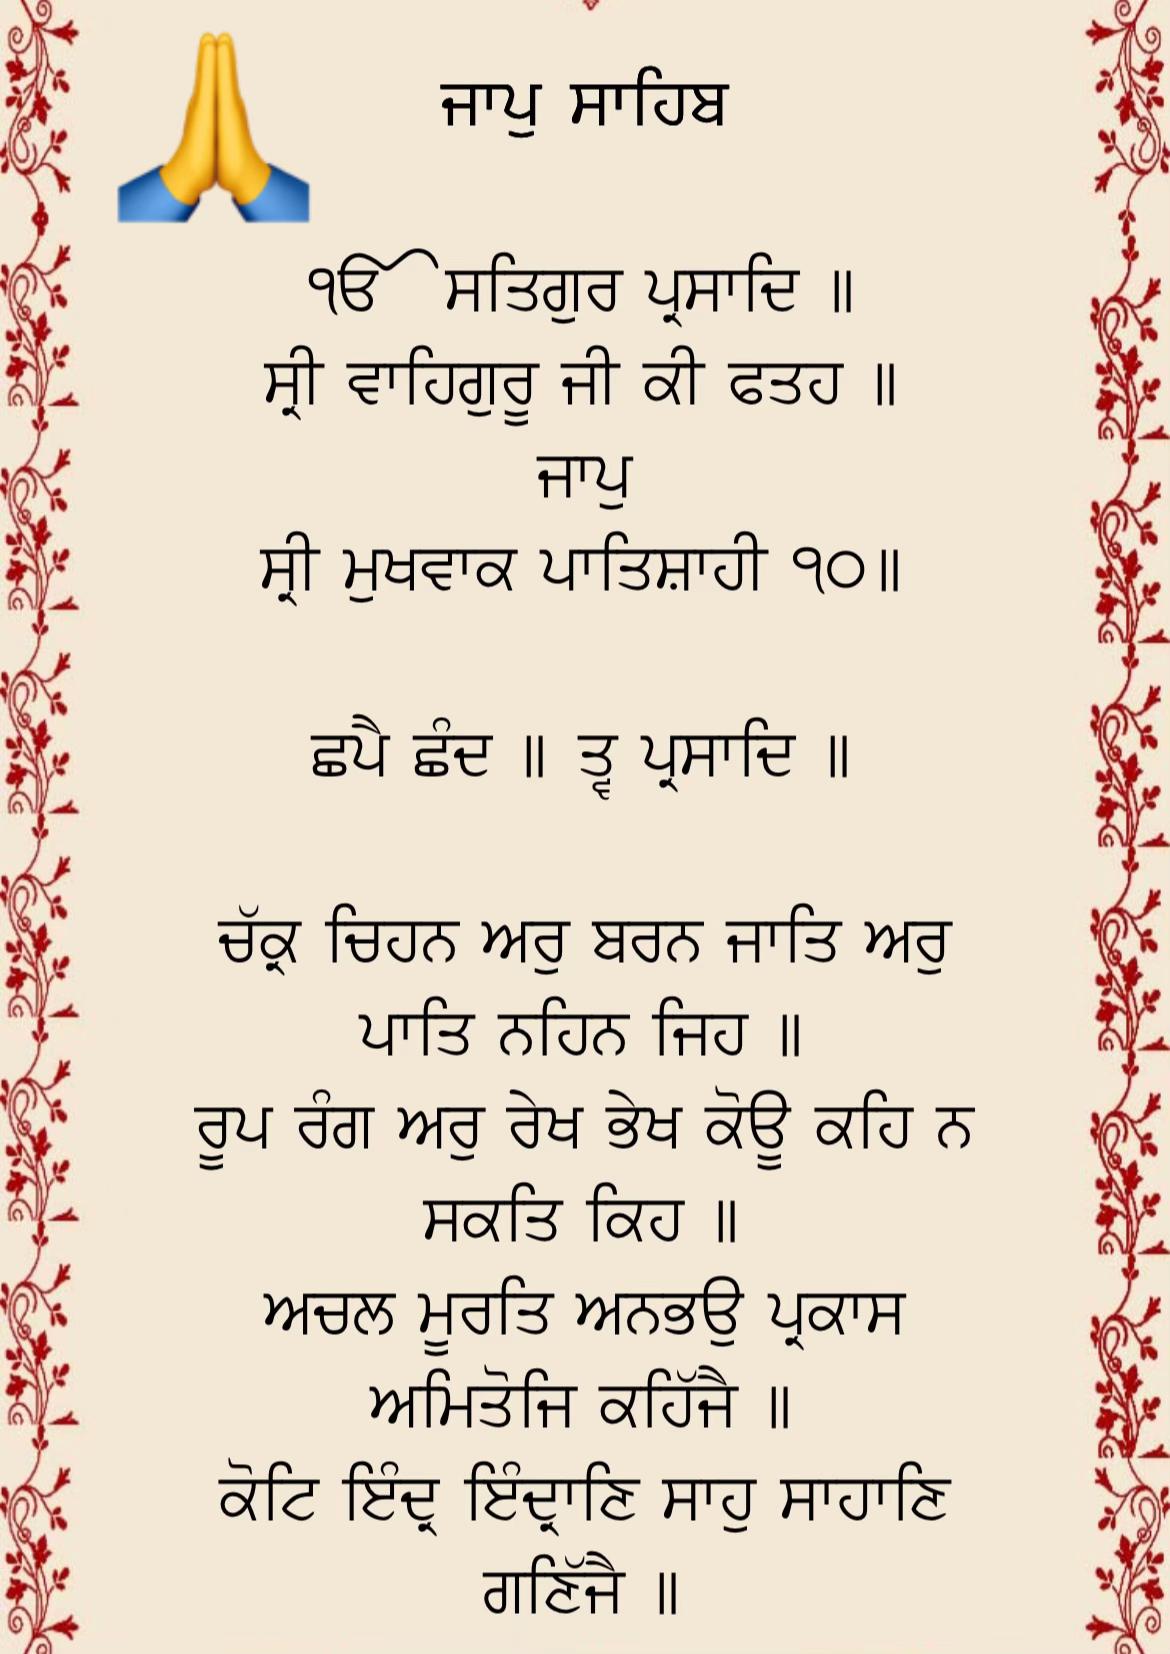 ਜਾਪੁ ਸਾਹਿਬ
ੴ ਸਤਿਗੁਰ ਪ੍ਰਸਾਦਿ ॥
ਸ੍ਰੀ ਵਾਹਿਗੁਰੂ ਜੀ ਕੀ ਫਤਹ ॥
ਜਾਪੁ
ਸ੍ਰੀ ਮੁਖਵਾਕ ਪਾਤਿਸ਼ਾਹੀ ੧੦॥
ਛਪੈ ਛੰਦ ॥ ਤ੍ਵ ਪ੍ਰਸਾਦਿ ॥
ਚੱਕ੍ਰ ਚਿਹਨ ਅਰੁ ਬਰਨ ਜਾਤਿ ਅਰੁ
ਪਾਤਿ ਨਹਿਨ ਜਿਹ ॥
ਰੂਪ ਰੰਗ ਅਰੁ ਰੇਖ ਭੇਖ ਕੋਊ ਕਹਿ ਨ
ਸਕਤਿ ਕਿਹ ॥
ਅਚਲ ਮੂਰਤਿ ਅਨਭਉ ਪ੍ਰਕਾਸ
ਅਮਿਤੋਜਿ ਕਹਿੱਜੈ ॥
ਕੋਟਿ ਇੰਦ੍ਰ ਇੰਦ੍ਰਾਣਿ ਸਾਹੁ ਸਾਹਾਣਿ
ਗਣਿੱਜੈ ॥